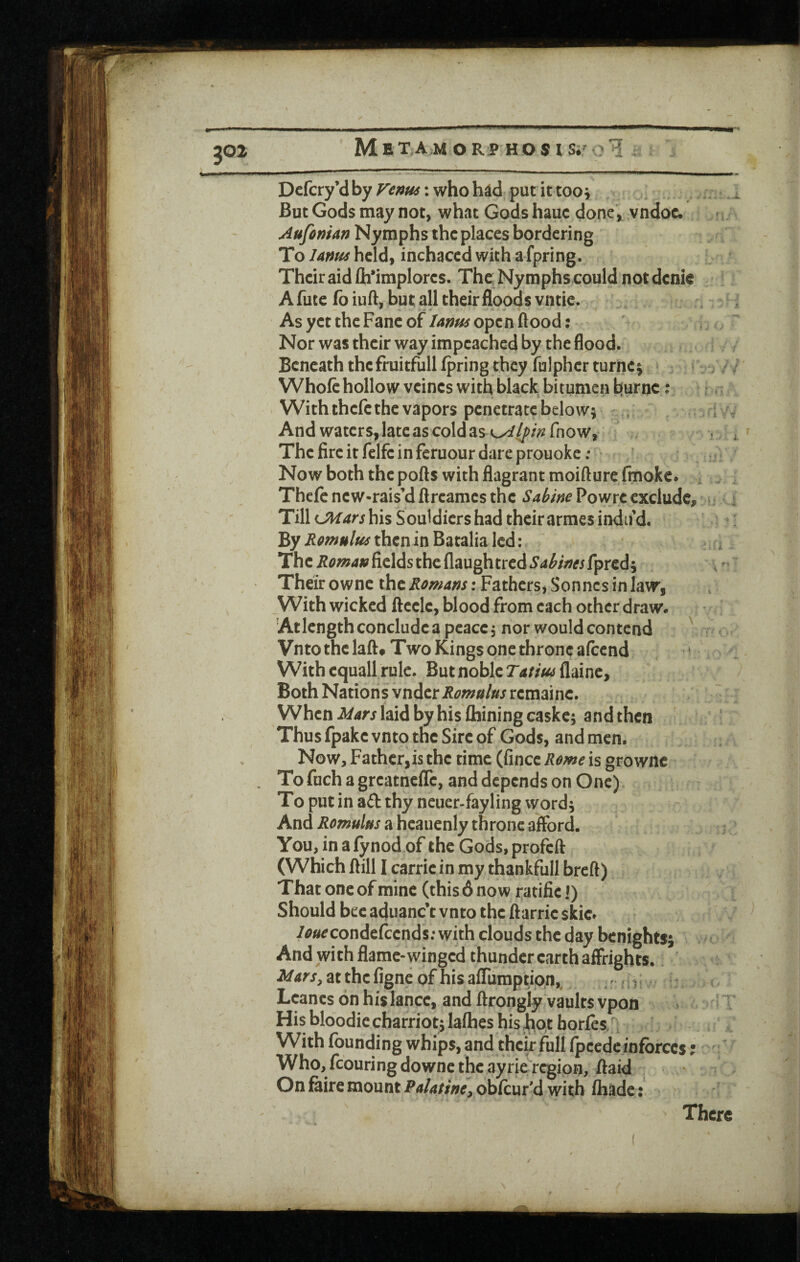 302 METAMORPHOSIS.
Deſcry'd by Venus: who had put it too;
But Gods may not, what Gods haue done, vndoe.
Auſonian Nymphs the places bordering
To Ianus held, inchaced with a ſpring.
Their aid ſh'implores. The Nymphs could not denie
A ſute ſo iuſt, but all their floods vntie.
As yet the Fane of Ianus open ſtood:
Nor was their way impeached by the flood.
Beneath the fruitfull ſpring they ſulpher turne;
Whoſe hollow veines with black bitumen burne:
With theſe the vapors penetrate below;
And waters, late as cold as Alpin ſnow,
The fire it ſelfe in feruour dare prouoke:
Now both the poſts with flagrant moiſture ſmoke.
Theſe new-rais'd ſtreames the Sabine Powre exclude,
Till Mars his Souldiers had their armes indu'd.
By Romulus then in Batalia led:
The Roman fields the ſlaughtred Sabines ſpred;
Their owne the Romans: Fathers, Sonnes in law,
With wicked ſteele, blood from each other draw.
At length conclude a peace; nor would contend
Vnto the laſt. Two Kings one throne aſcend
With equall rule. But noble Tatius ſlaine,
Both Nations vnder Romulus remaine.
When Mars laid by his ſhining caske; and then
Thus ſpake vnto the Sire of Gods, and men.
Now, Father, is the time (ſince Rome is growne
To ſuch a greatneſſe, and depends on One)
To put in act thy neuer-fayling word;
And Romulus a heauenly throne afford.
You, in a ſynod of the Gods, profeſt
(Which ſtill I carrie in my thankfull breſt)
That one of mine (this ô now ratifie!)
Should bee aduanc't vnto the ſtarrie skie.
Ioue condeſcends: with clouds the day benights;
And with flame-winged thunder earth affrights.
Mars, at the ſigne of his aſſumption,
Leanes on his lance, and ſtrongly vaults vpon
His bloodie charriot; laſhes his hot horſes
With ſounding whips, and their full ſpeede inforces:
Who, ſcouring downe the ayrie region, ſtaid
On faire mount Palatine, obſcur'd with ſhade:
There